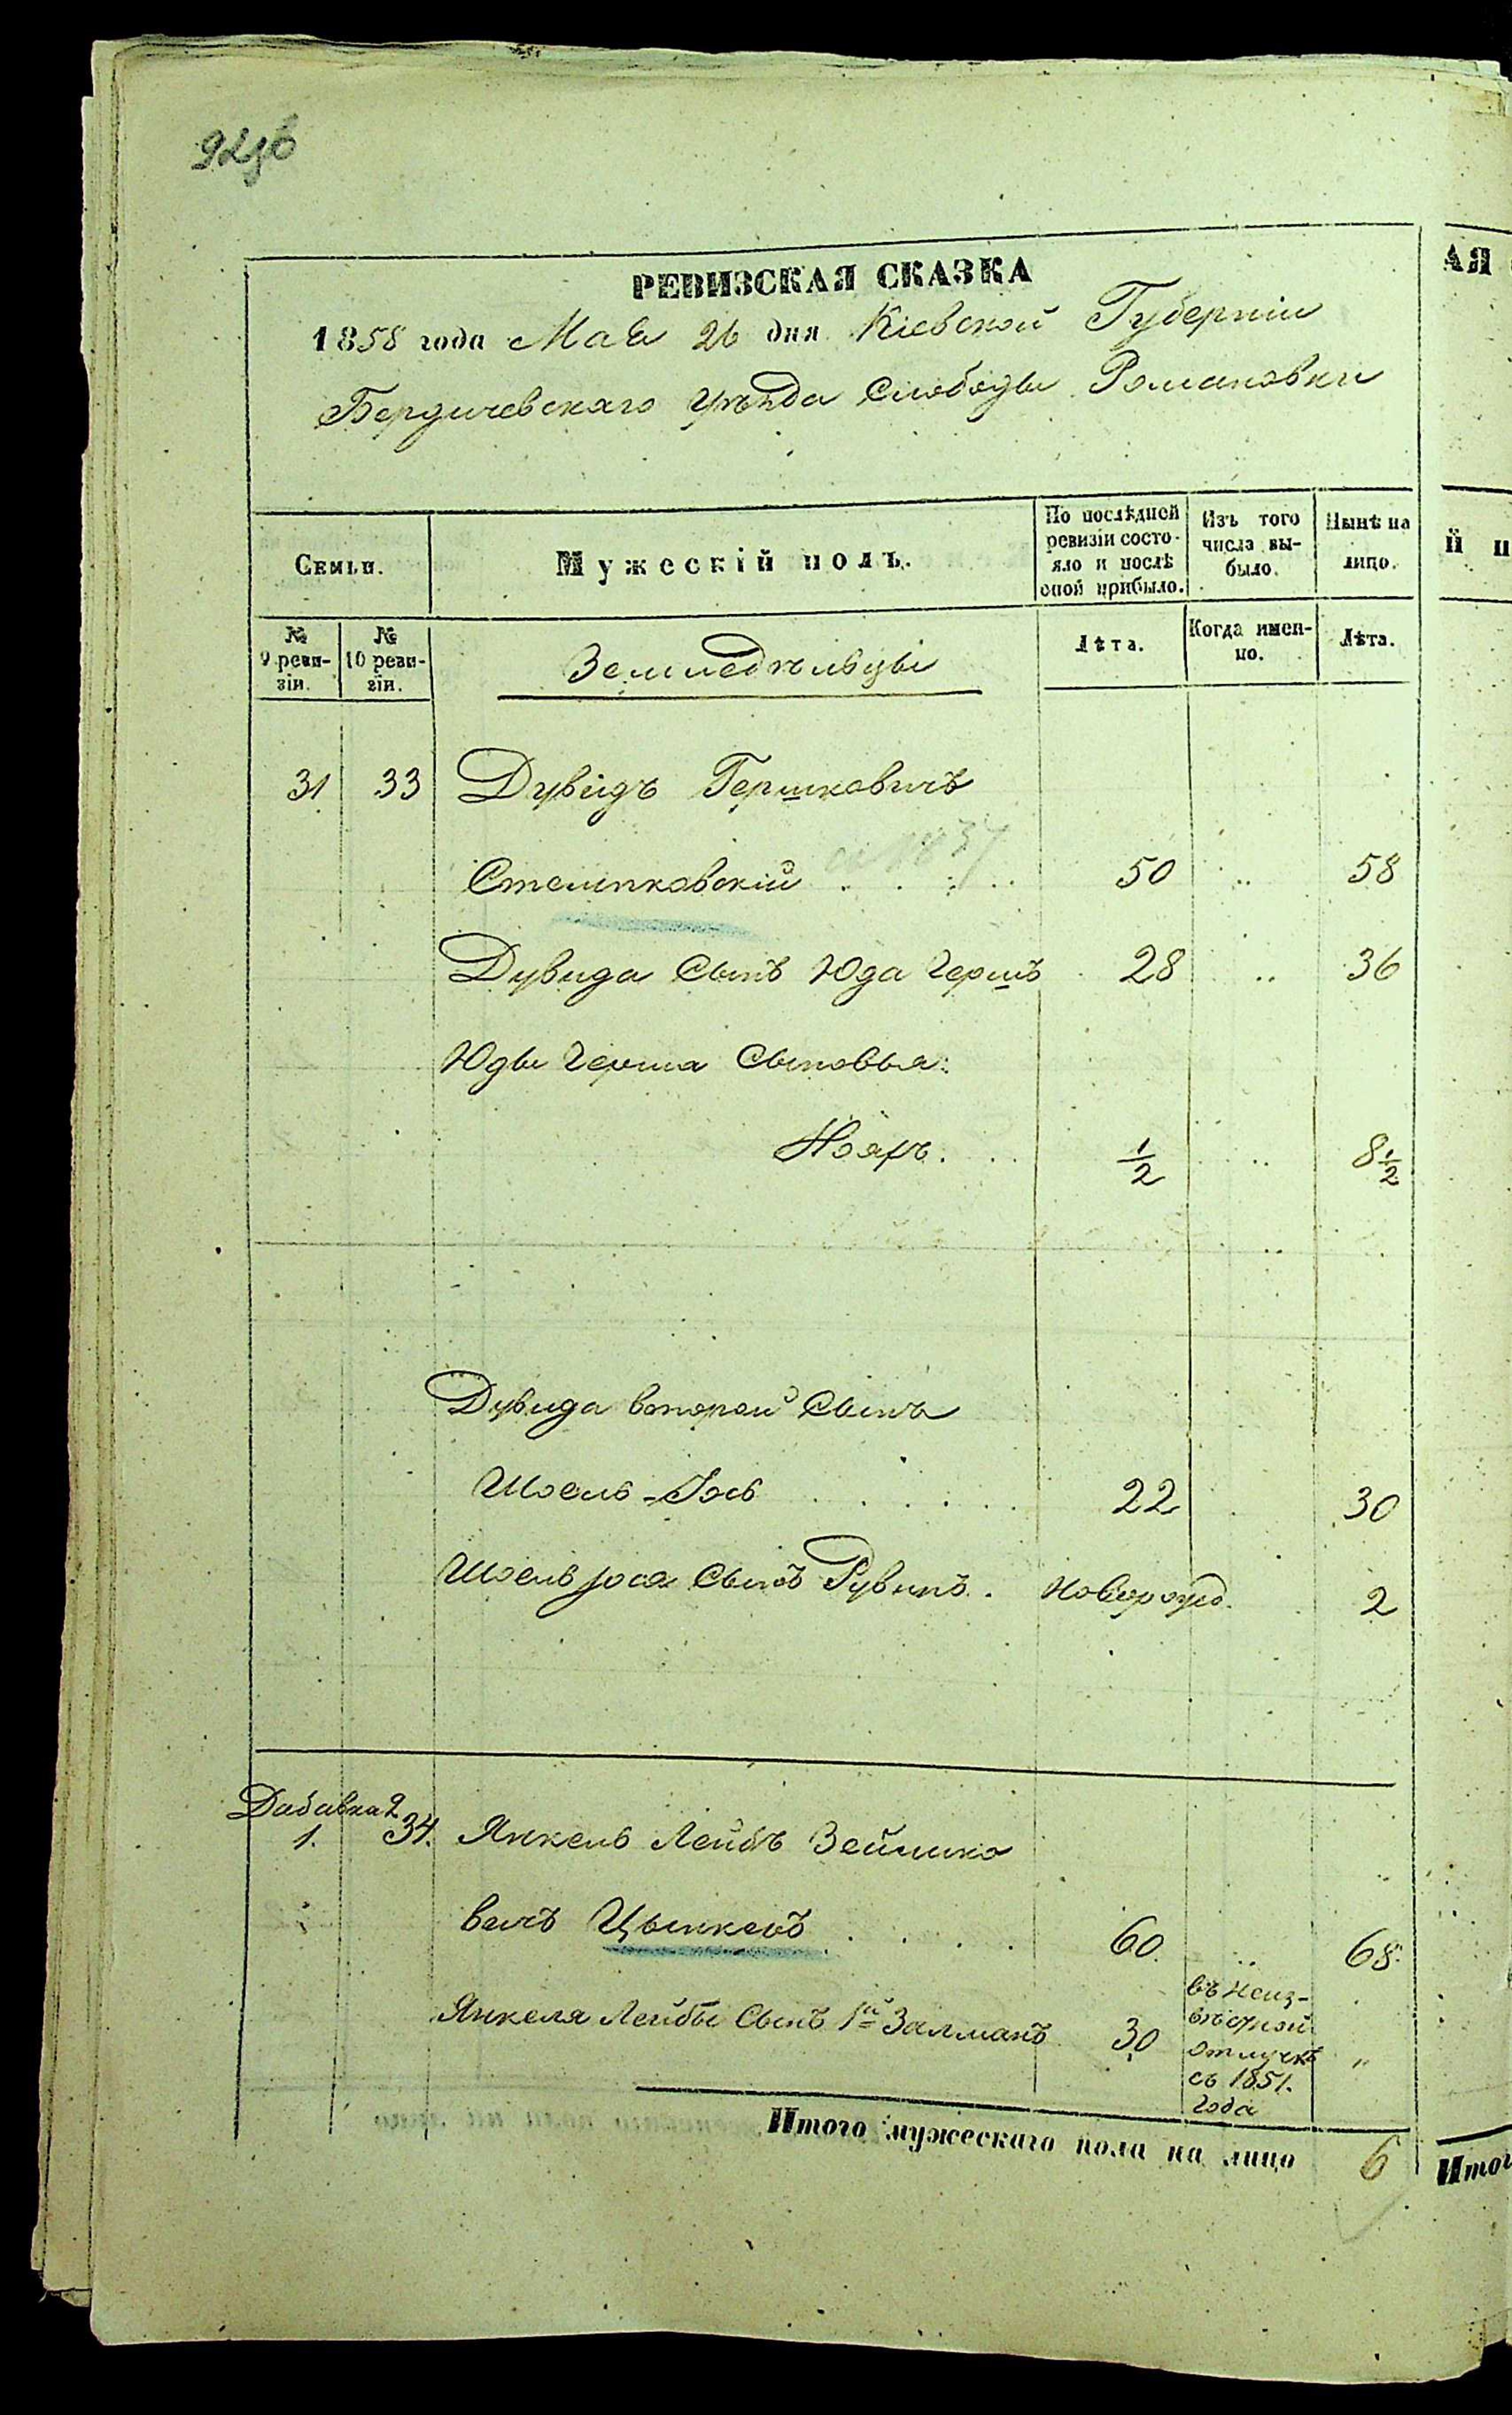 РЕВИЗСКАЯ СКАЗКА
1858 года Мая 26 дня Кіевской Губерніи
Бердичевскаго Уѣзда Слободы Романовки
Семьи.
Мужескій полъ.
По послѣдней ревизіи состо-
яло и послѣ
оной прибыло.
Изъ того
числа вы-
было.
Нынѣ на
лицо.
№
9 реви-
зіи.
№
10 реви-
зіи.
Земледѣльцы
Лѣта.
Когда имен-
но.
Лѣта.
31 33 Дувидъ Гершковичъ
50 .. 58
Дувида Сынъ Юда Гершъ 28 .. 36
Юды Герша Сыновья:
½ .. 8½
Дувида второй Сынъ
Шоель-Іось 22 30
Шоель Іося Сынъ Рувинъ. новорожд. 2
Добавка 2
1. 34. Янкель Лейбъ Зейлико
вичъ 60 .. 68.
Янкеля Лейбы Сынъ 1й Залманъ 30 "
въ неиз-
вѣстной
отлучкѣ
съ 1851.
года
Итого мужескаго пола на лицо 6
АЯ
Й П
Итог